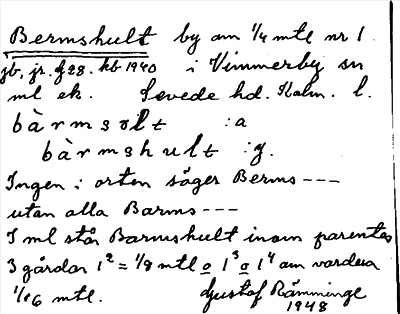 Bermshult by am 1/4 mtl nr 1
jb, jr. f 28. kb 1940 i Vimmerby sn
ml ek. Sevede hd. Kalm. l.
bàrmsølt :a
bàrmshult :y.
Ingen i orten säger Berms---
utan alla Barms---
I ml står Barmshult inom parentes
3 gårdar 1² = 1/8 mtl o 1³ o 1⁴ am vardera
1/16 mtl. Gustaf Rämminge
1948